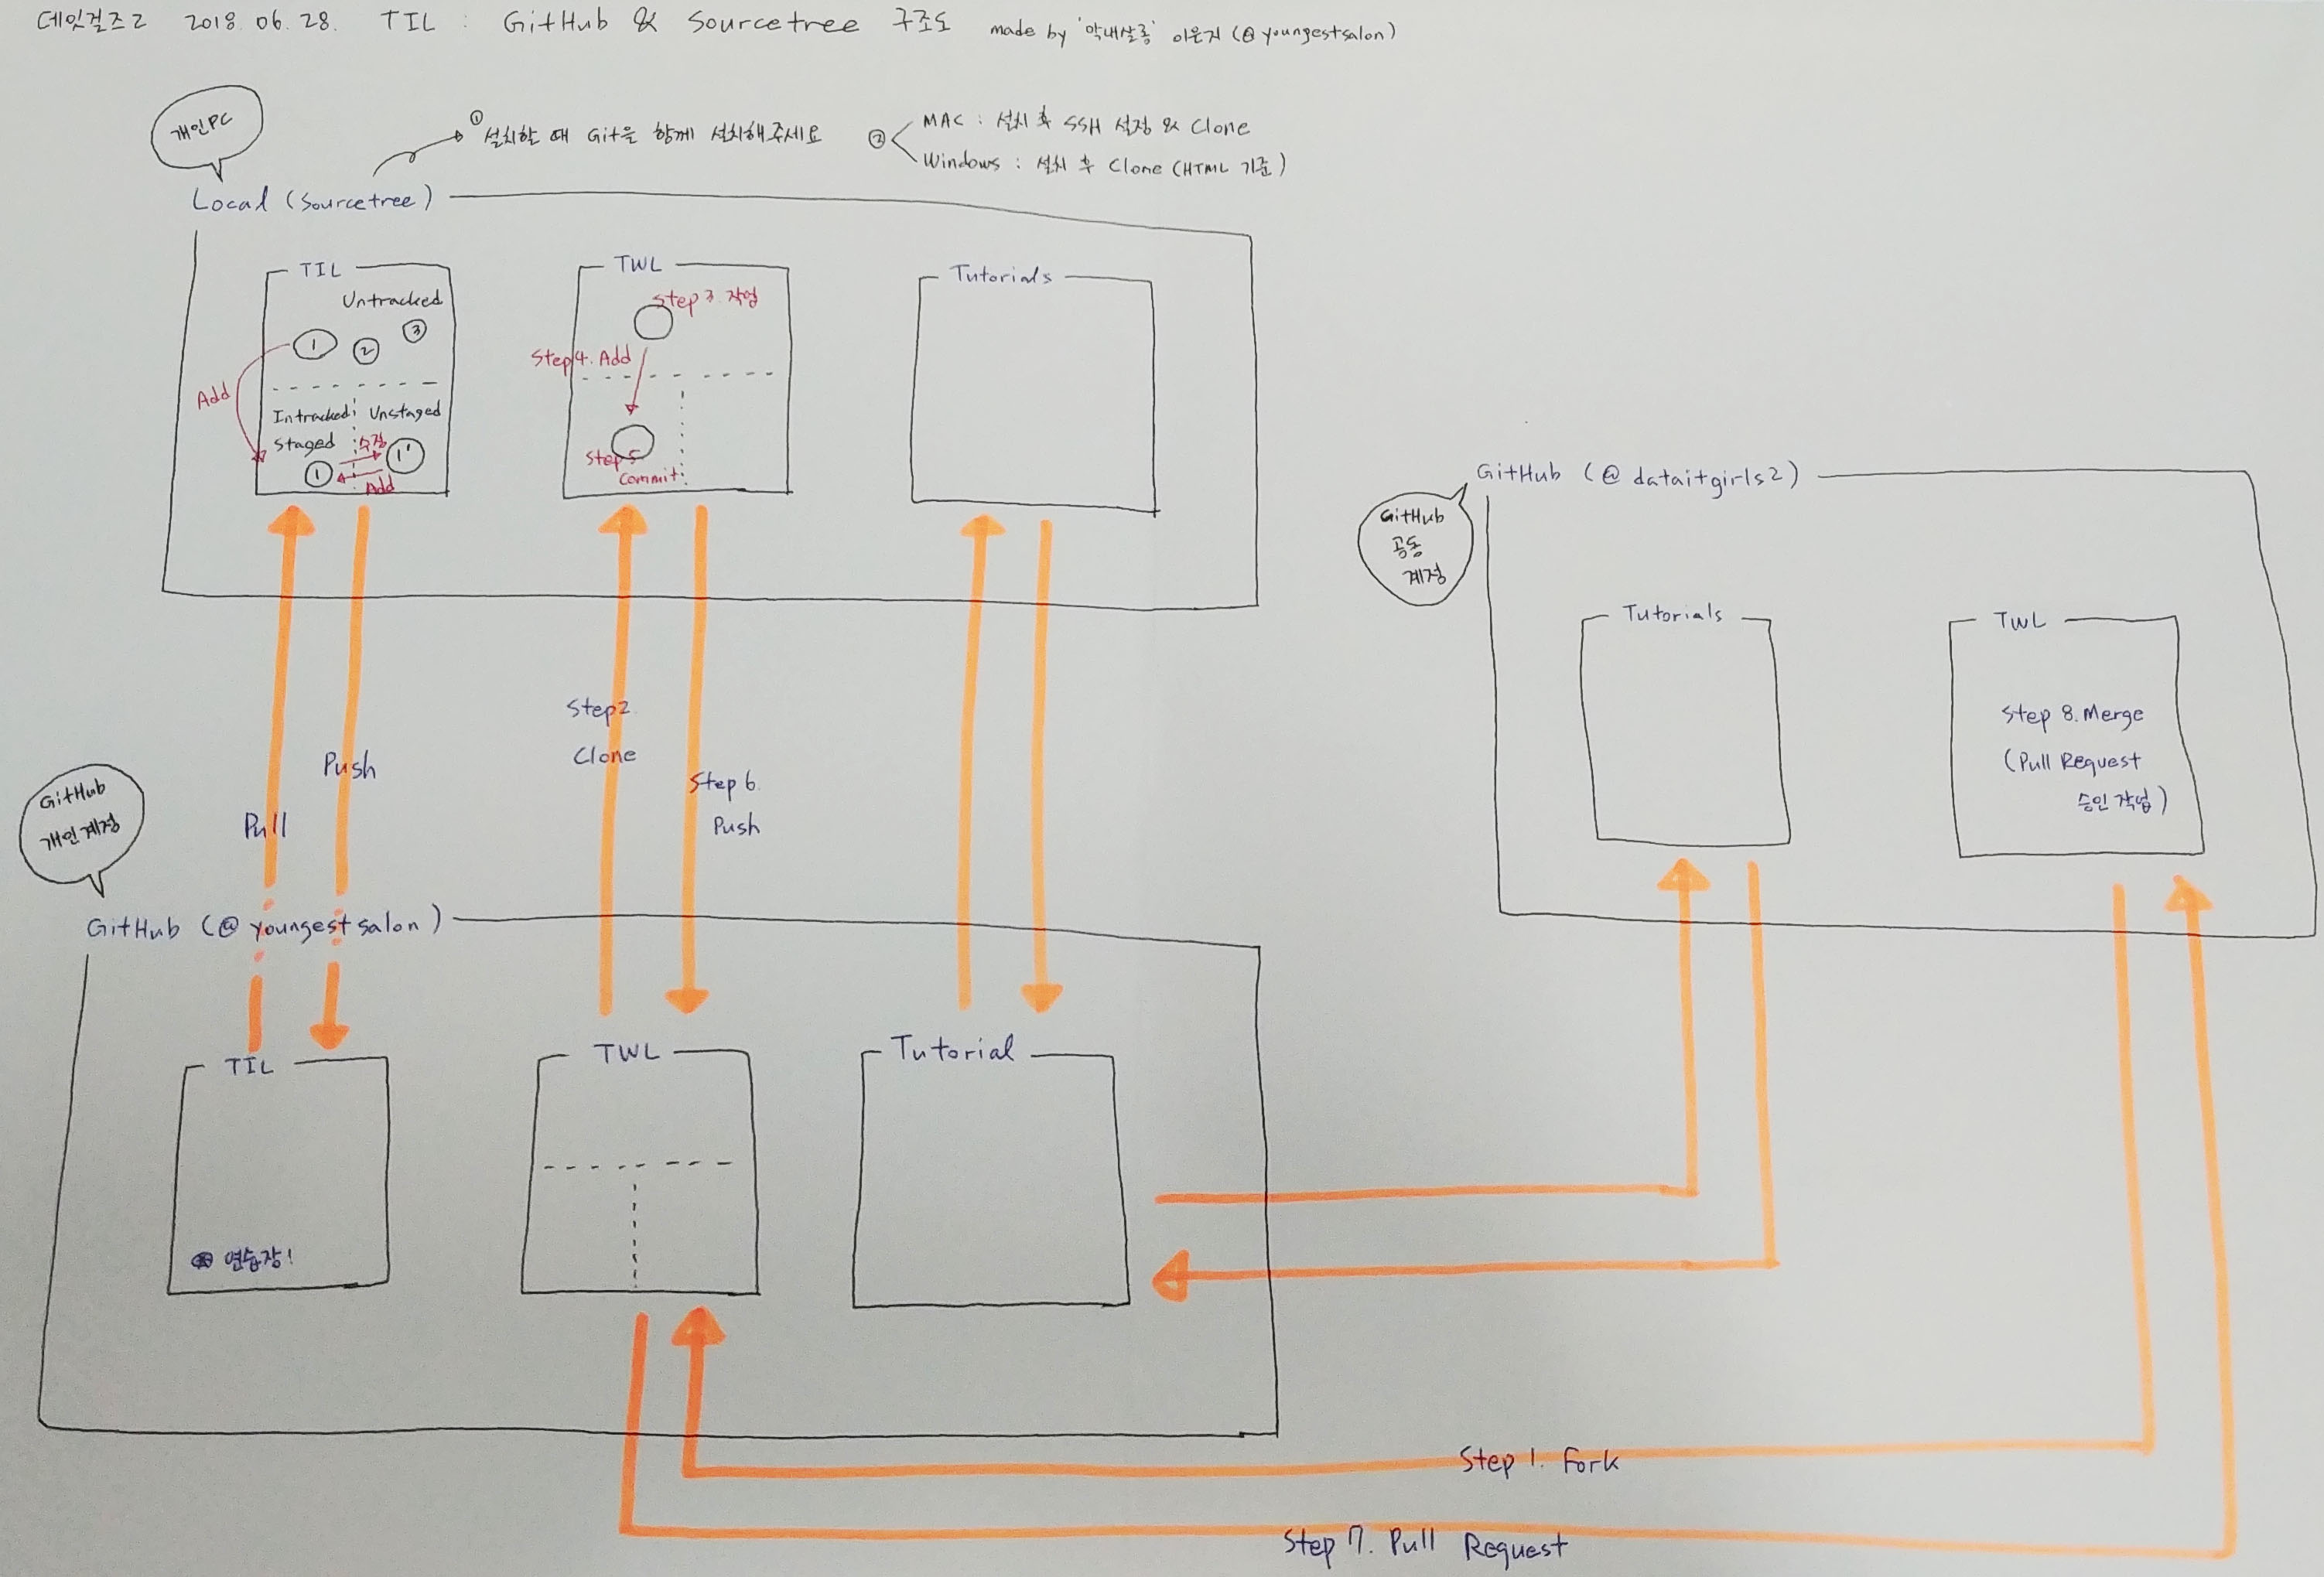 데잇걸즈2 2018. 06. 28. TIL : GitHub & Sourcetree 구조도 made by '막내살롱' 이은지 (@youngestsalon)
개인PC
① 설치할 때 Git을 함께 설치해주세요
② MAC : 설치 후 SSH 설정 & Clone
Windows : 설치 후 Clone (HTML 기준)
Local (Sourcetree)
TIL
Untracked
① ② ③
Add
Intracked Unstaged
Staged 수정
① ①'
Add
TWL
Step 3. 작업
Step 4. Add
Step 5
Commit
Tutorials
Pull
Push
Step 2.
Clone
Step 6.
Push
GitHub
개인계정
GitHub (@youngestsalon)
TIL
연습장!
TWL
Tutorial
GitHub
공동
계정
GitHub (@dataitgirls2)
Tutorials
TWL
Step 8. Merge
(Pull Request
승인작업)
Step 1. Fork
Step 7. Pull Request